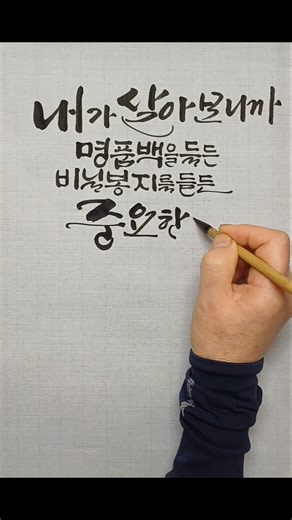 내가 살아보니까
명품백을 들든
비닐봉지를 들든
중요한